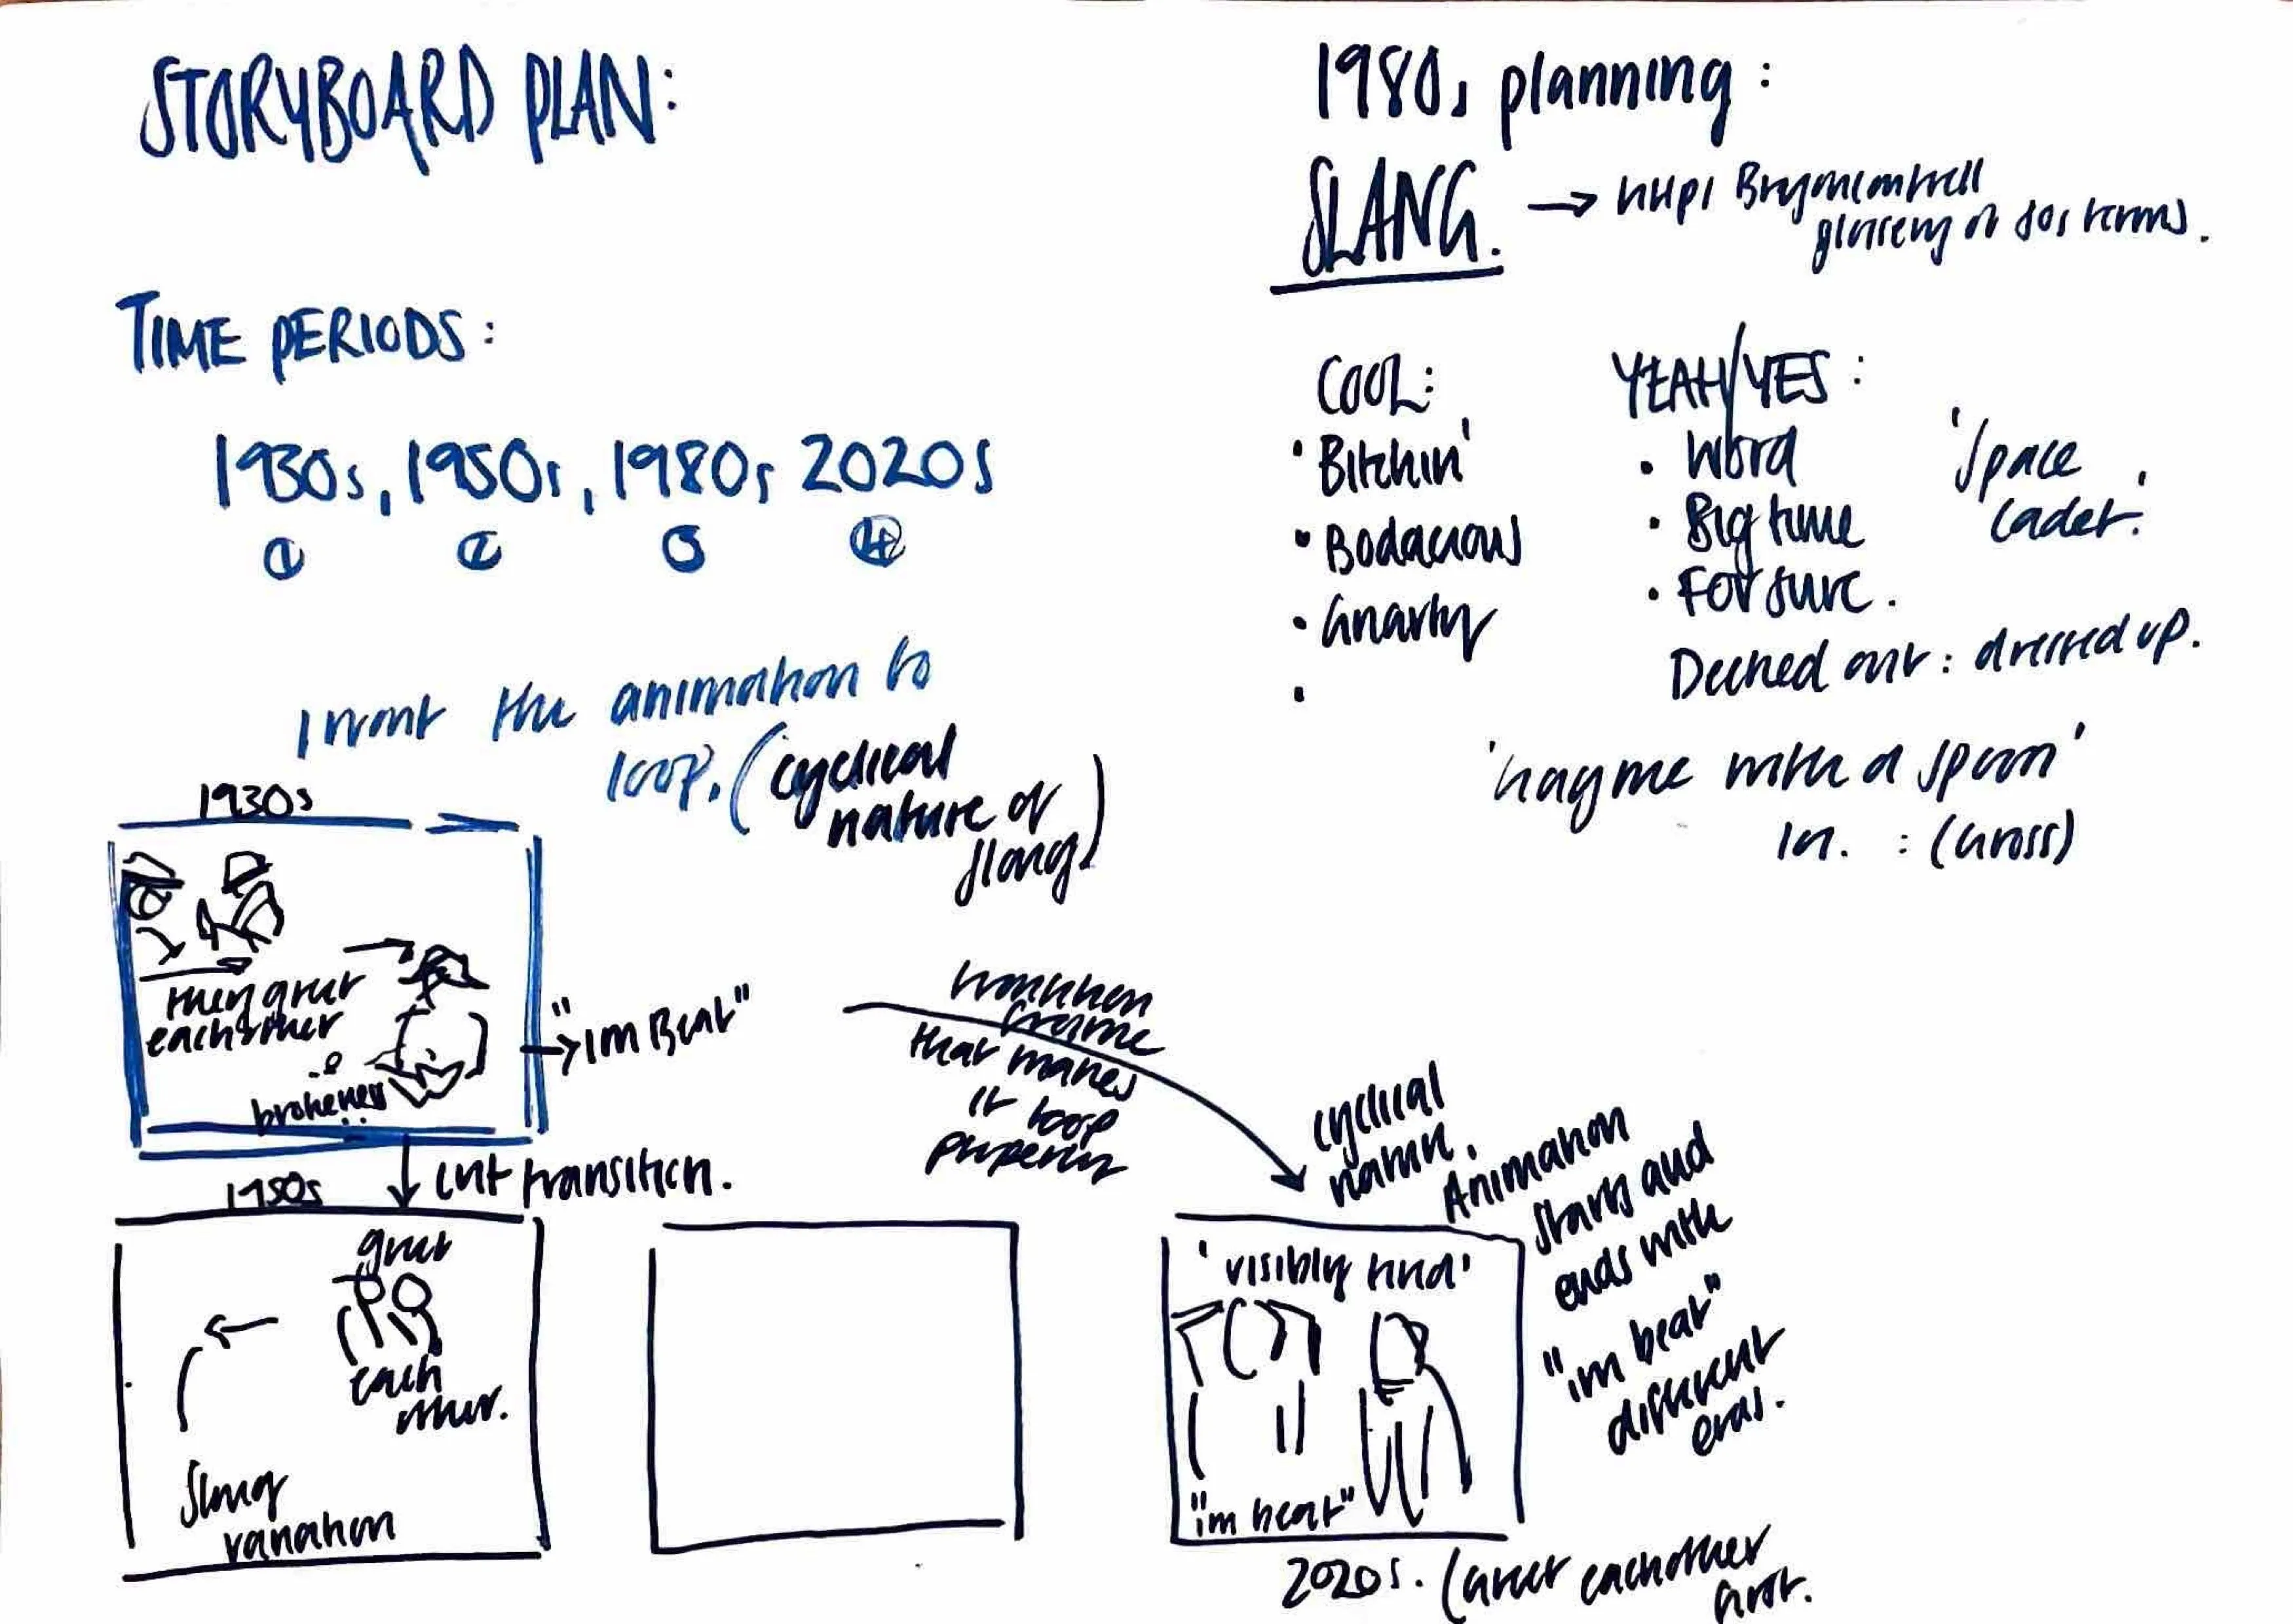 STORYBOARD PLAN:
TIME PERIODS:
1930s, 1950s, 1980s 2020s
① ② 3 ④
I want the animation to
loop. (cyclical
nature of
slang)
1930s
They greet
each other
brokeness
"im Beat"
cut transition.
1950s
greet
each
other.
Slang
variation
transition
frame
that makes
it loop
properly
cyclical
nature.
Animation
starts and
ends with
"im beat"
different
eras.
'visibly tired'
"im beat"
2020s. (Greet eachother
first.
1980s planning:
SLANG.
glossary of 80s terms.
COOL:
• Bitchin'
• Bodacious
• Gnarly
•
YEAH/YES:
• Word
• Big time
• For sure.
'Space
cadet.'
Decked out: dressed up.
'gag me with a spoon'
: (Gross)